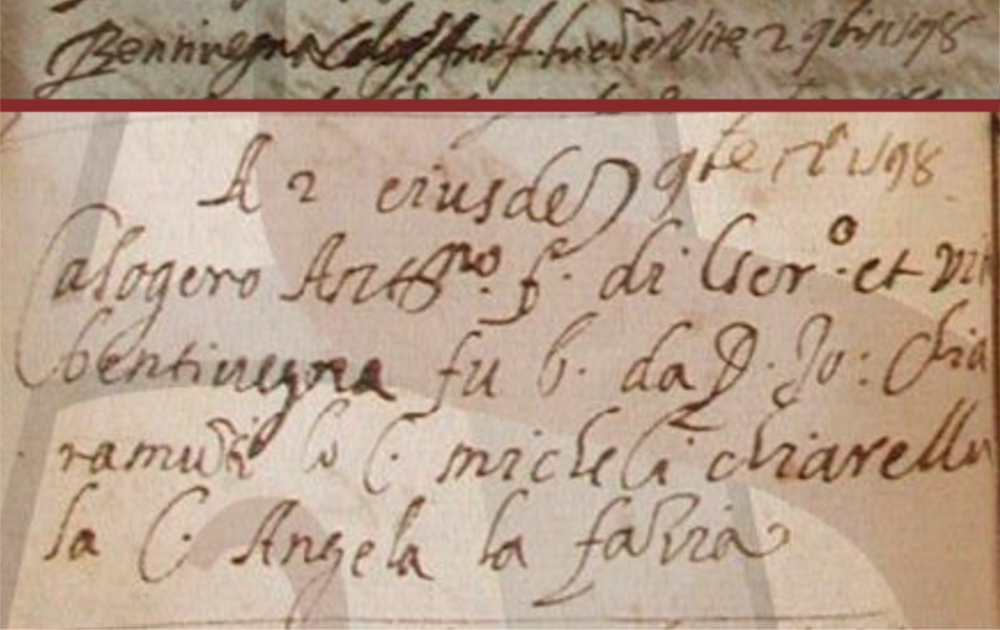 Bentivegna Calog° Ant° f. 2 9bris 1598
A 2 eiusdem 9bris 1598
Calogero Antno. f. di Ger.o et Vin
bentivegna fu b. da D. Jo: Chia
ramuti lo C. micheli chiarellu
la C. Angela la